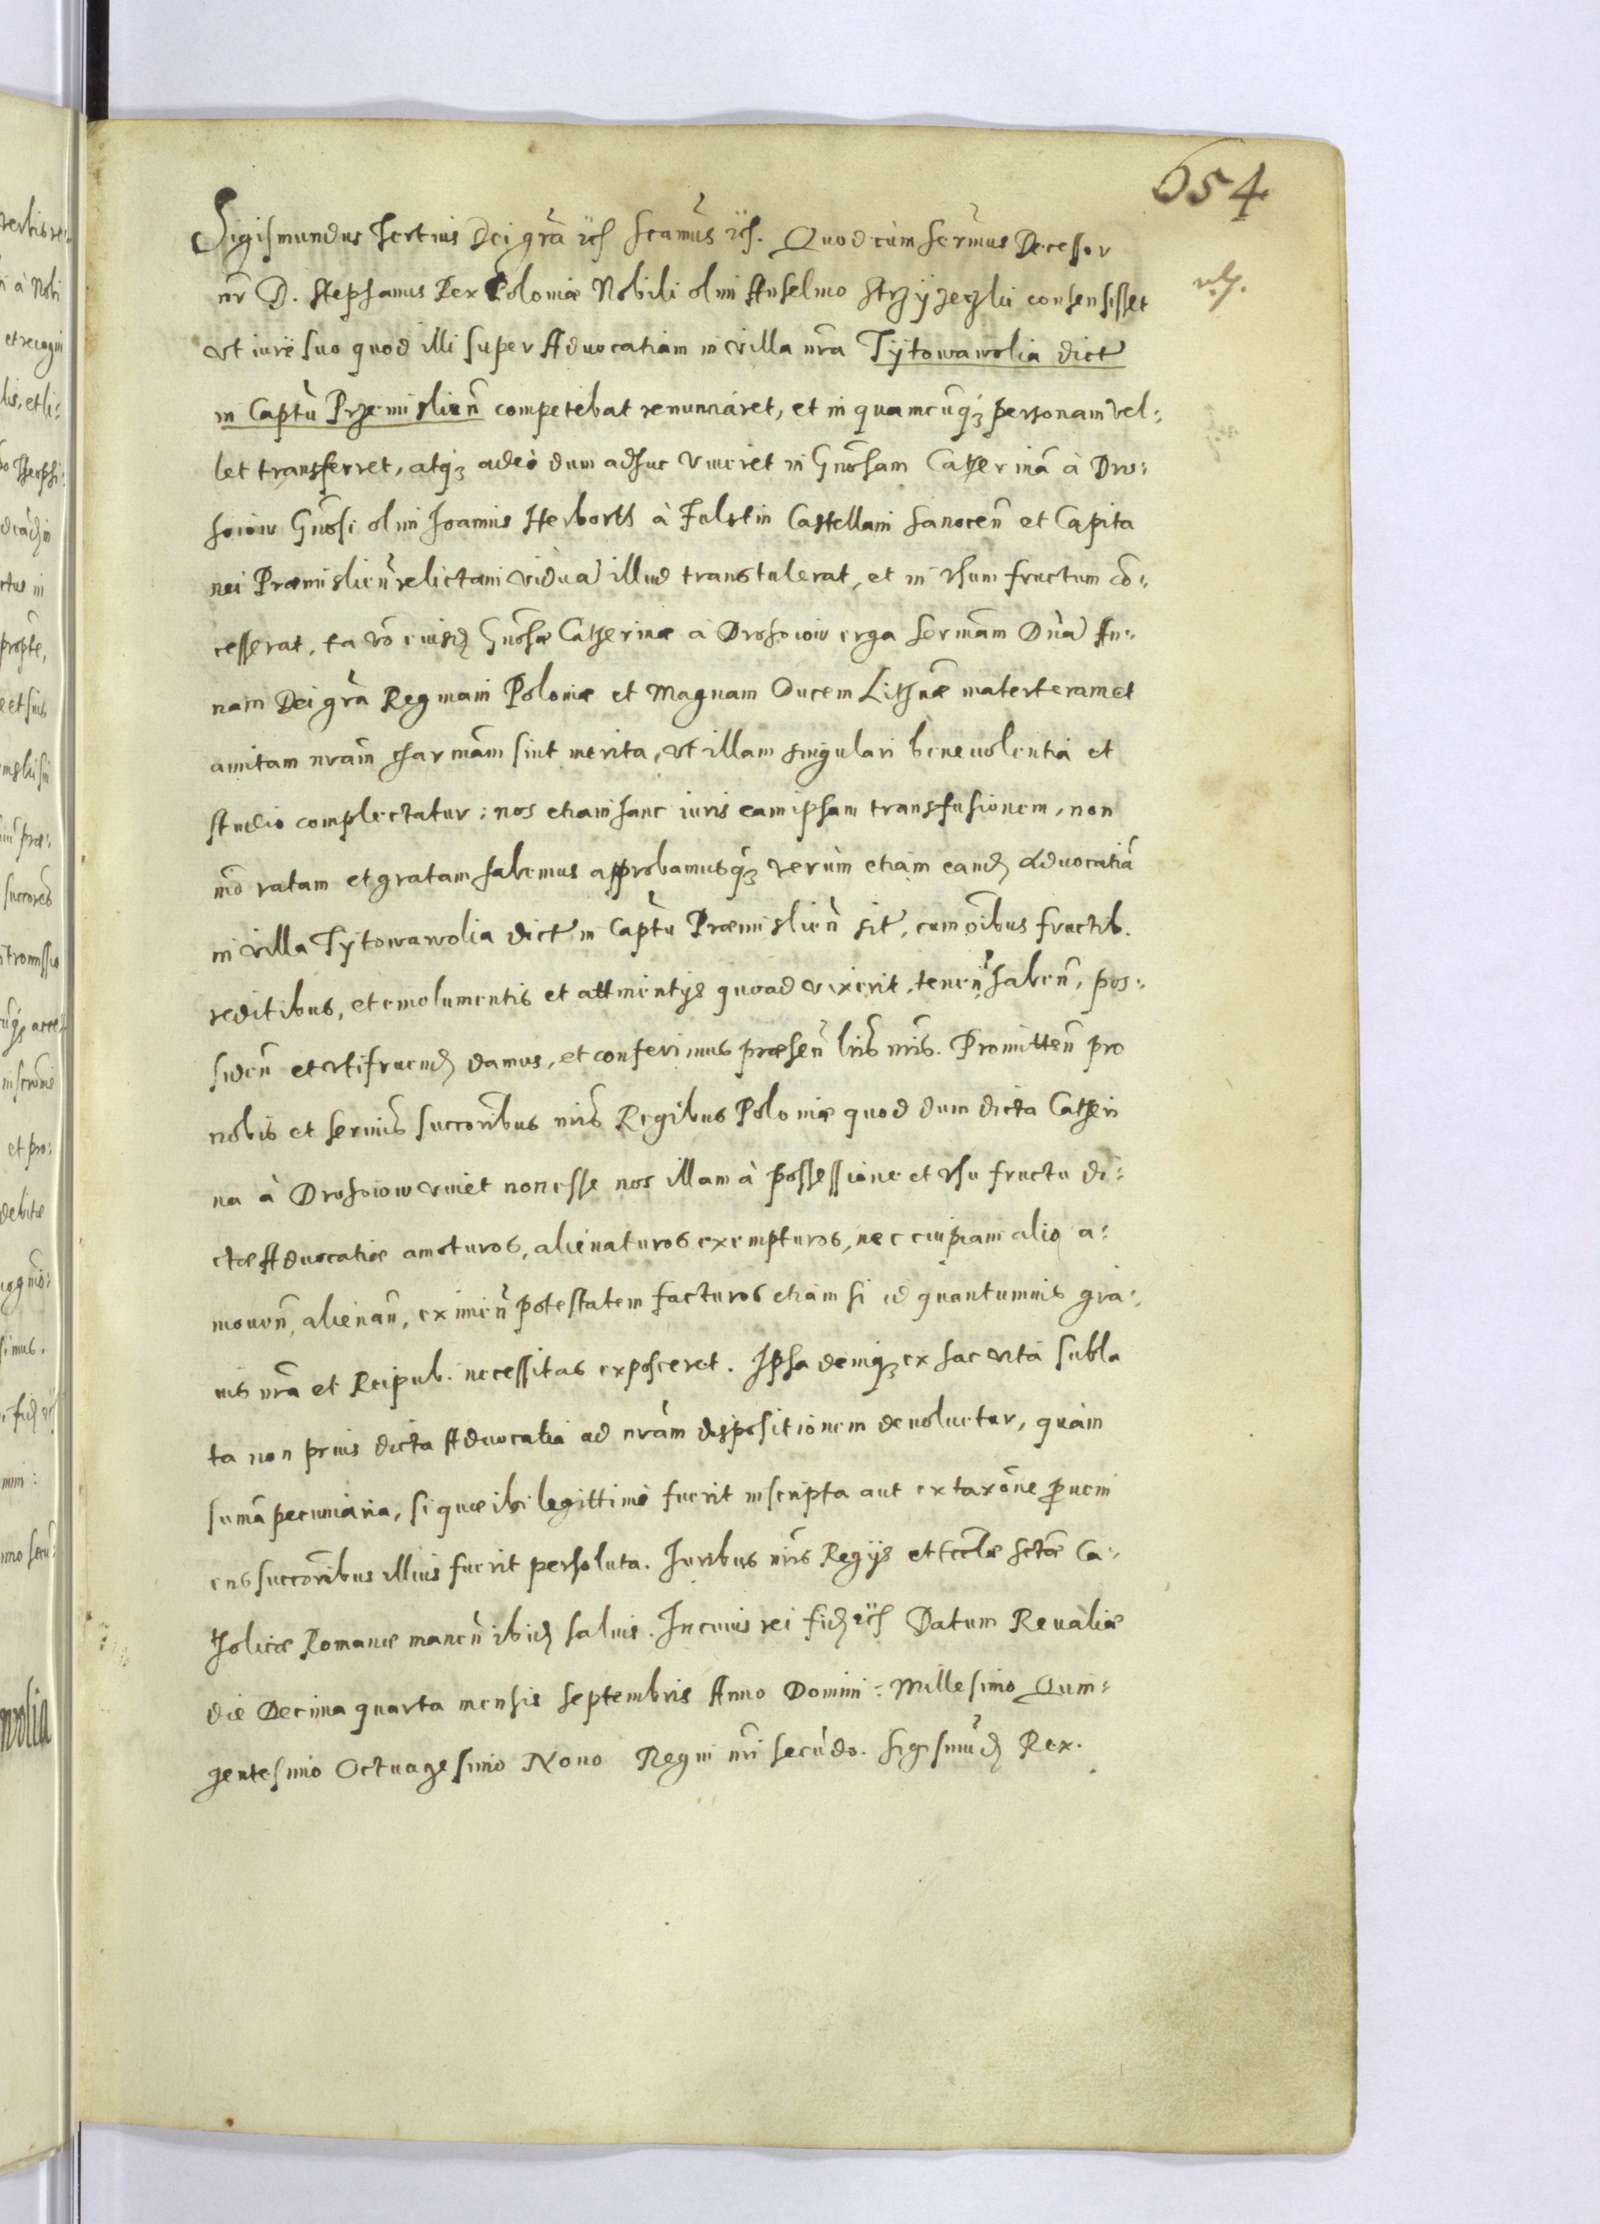 654
Sigismundus Tertius Dei gra etc scamus etc. Quod cùm sermus Decessor
nr D. Stephanus Rex Poloniæ Nobili olim Anselmo consensisset
ut iure suo quod illi super Aduocatiam in villa nra Tytowawolia dict
in Captu Przemislien competebat renunciaret, et in quamcunq personam vel:
let transferret, atq adeò dum adhuc viueret in Gnosam Catherinã à Dro:
hoiow Gnosi olim Joannis Herborth à Fulstin Castellani Sanocen et Capita
nei Præmislien relictam viduã illud transtulerat, et in usum fructum cõ:
cesserat, ea vo eiusd Gnosæ Catherinæ à Drohoiow erga sermam Dnã An:
nam Dei gra Reginam Poloniæ et Magnam Ducem Lithnæ materteram et
amitam nram charmam sint merita, ut illam singulari beneuolentia et
studio complectatur: nos etiam hanc iuris eam ipsam transfusionem, non
mõ ratam et gratam habemus approbamusq verùm etiam eand Aduocatiã
in villa Tytowawolia dict in Captu Præmislien sit, cum oibus fructib.
reditibus, et emolumentis et attinentijs quoad vixerit, tenen haben, pos:
siden et utifruend damus, et conferimus præsen lris nris. Promitten pro
nobis et sermis succoribus nris Regibus Poloniæ quod dum dicta Catheri
na à Drohoiow viuet non esse nos illam à possessione et usu fructu di:
ctæ Aduocatiæ amoturos, alienaturos exempturos, nec cuipiam alio a:
mouen, alienan, eximen potestatem facturos etiam si id quantumuis gra:
uis nra et Reipub. necessitas exposceret. Ipsa deniq ex hac vita subla
ta non prius dicta Aduocatia ad nram dispositionem deuoluetur, quàm
suma pecuniaria, si quæ ibi legittimè fuerit inscripta aut ex taxone proueni
ens succoribus illius fuerit persoluta. Iuribus nris Regijs et Eccliæ sctæ Ca:
tholicæ Romanæ manen ibid saluis. In cuius rei fid etc Datum Reualiæ
die Decima quarta mensis Septembris Anno Domini: Millesimo Quin:
gentesimo Octuagesimo Nono Regni nri secùdo. Sigismùd Rex.